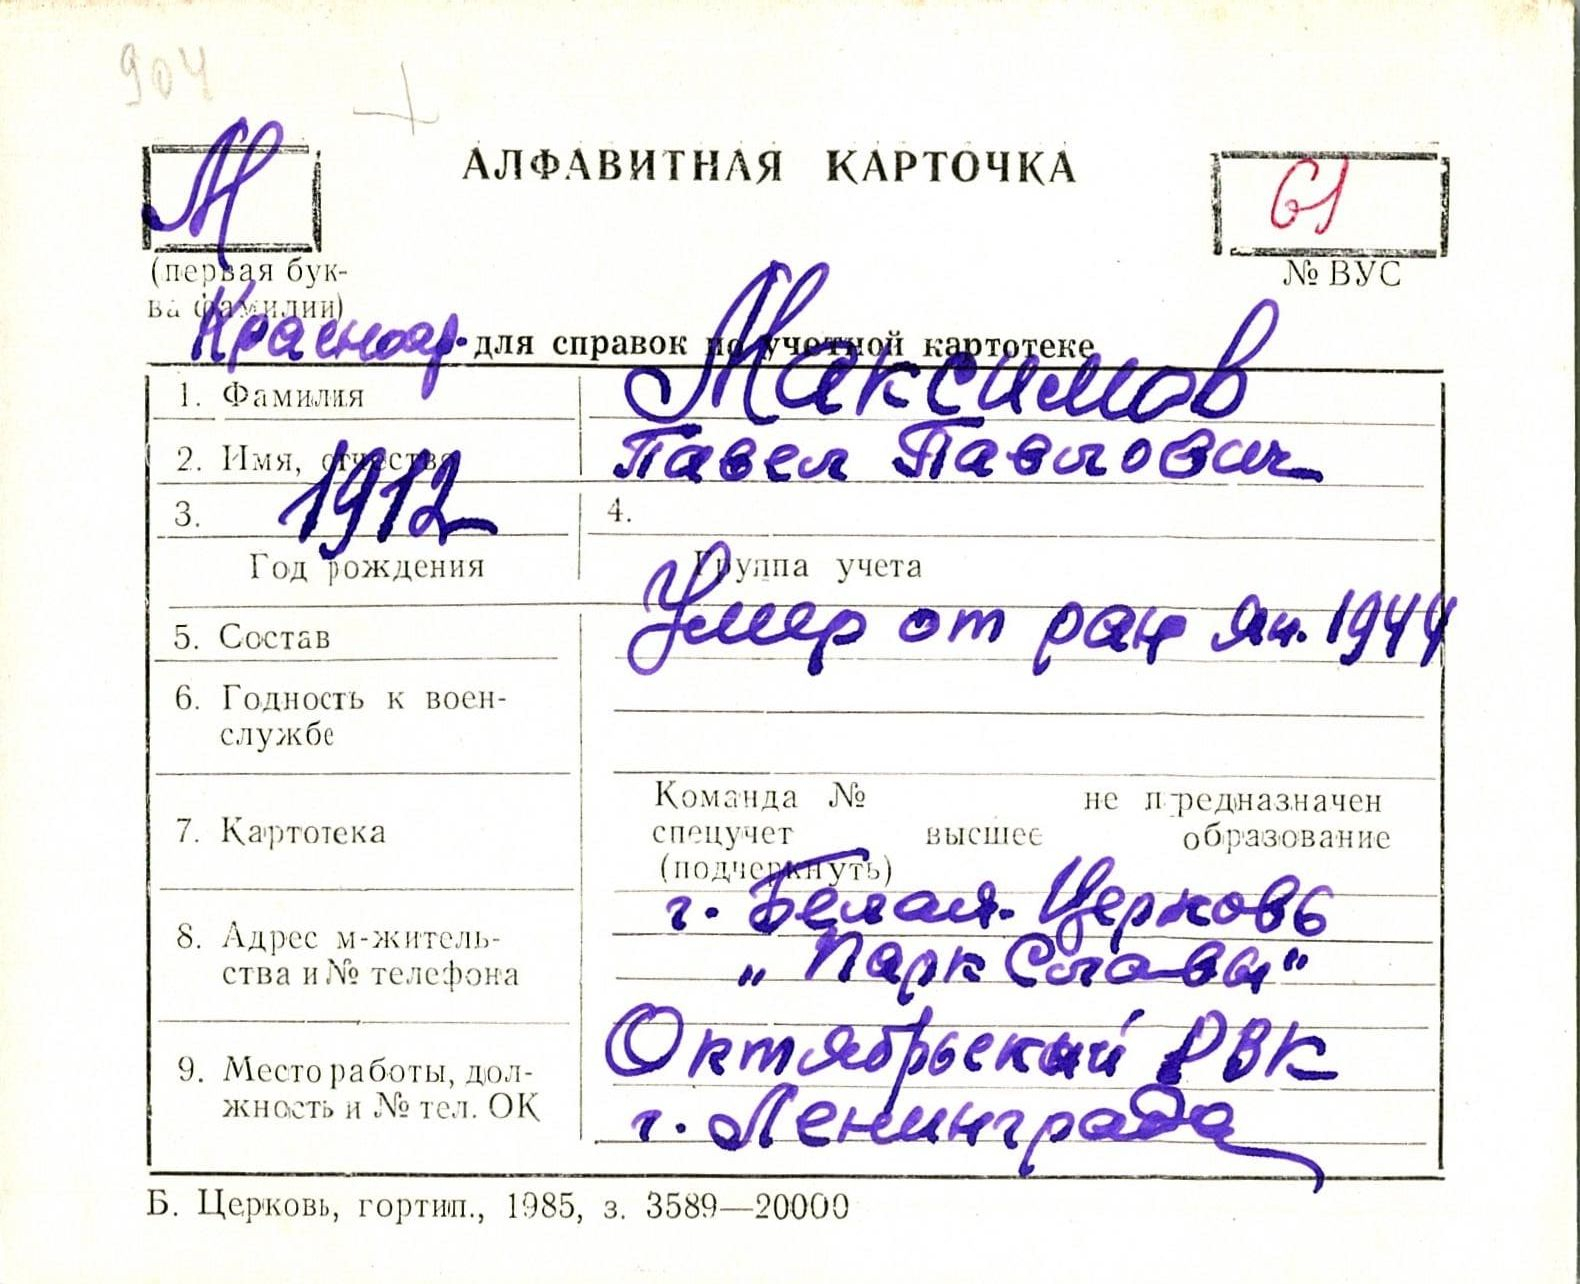 904
М
АЛФАВИТНАЯ КАРТОЧКА
61
(первая бук-
ва фамилии)
№ ВУС
Красноар. для справок по учетной картотеке
1. Фамилия Максимов
2. Имя, отчество Павел Павлович
3. 1912 4.
Год рождения Группа учета
5. Состав Умер от ран Ян. 1944
6. Годность к воен-
службе
7. Картотека Команда № не предназначен
спецучет высшее образование
(подчеркнуть)
8. Адрес м-житель-
ства и № телефона
г. Белая-Церковь
„Парк Славы"
9. Место работы, дол-
жность и № тел. ОК
Октябрьский РВК
г. Ленинграда
Б. Церковь, гортип., 1985, з. 3589—20000